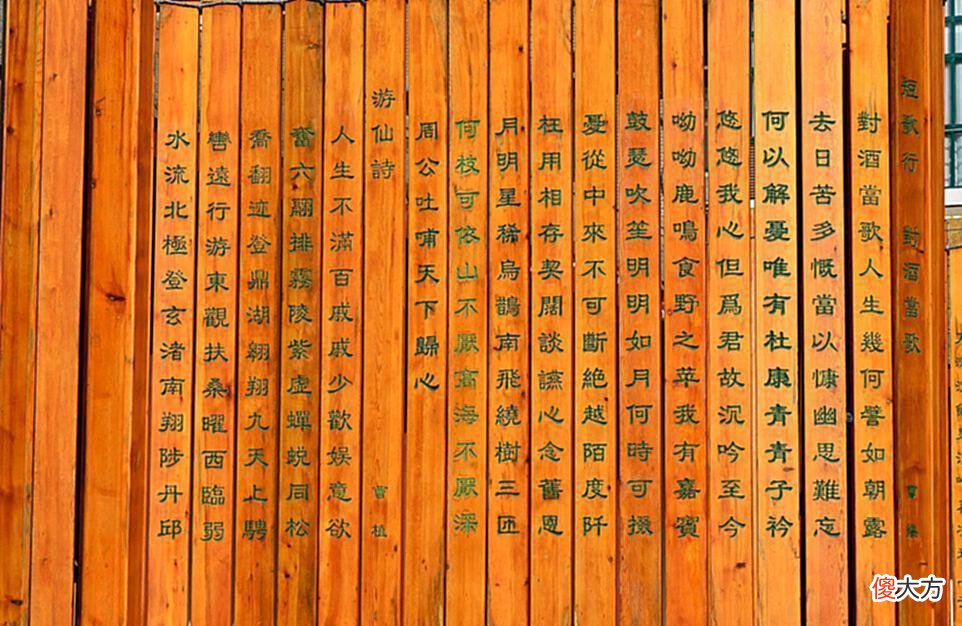 短歌行 對酒當歌 曹操
對酒當歌人生幾何譬如朝露
去日苦多慨當以慷幽思難忘
何以解憂唯有杜康青青子衿
悠悠我心但爲君故沉吟至今
呦呦鹿鳴食野之苹我有嘉賓
鼓瑟吹笙明明如月何時可掇
憂從中來不可斷絕越陌度阡
枉用相存契闊談讌心念舊恩
月明星稀烏鵲南飛繞樹三匝
何枝可依山不厭高海不厭深
周公吐哺天下歸心
游仙詩 曹植
人生不滿百戚戚少歡娛意欲
奮六翮排霧陵紫虛蟬蛻同松
喬翻迹登鼎湖翱翔九天上騁
轡遠行游東觀扶桑曜西臨弱
水流北極登玄渚南翔陟丹邱
傻大方